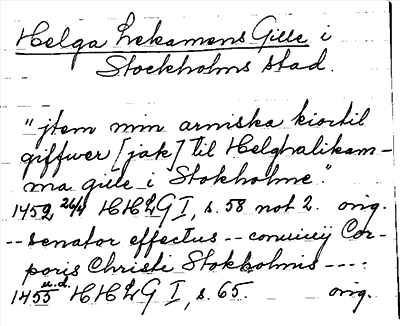 Helga Lekamens Gille i
Stockholms stad.
"jtem min arniska kiortil
giffwer [jak] til Helghalikam-
ma gille i Stokholme".
1452 26/4 HHLG I, s. 58 not 2. orig.
-- senator effectus -- convivij Cor-
poris Christi Stokholmis ----
1455 u.d. HHLG I, s. 65. orig.